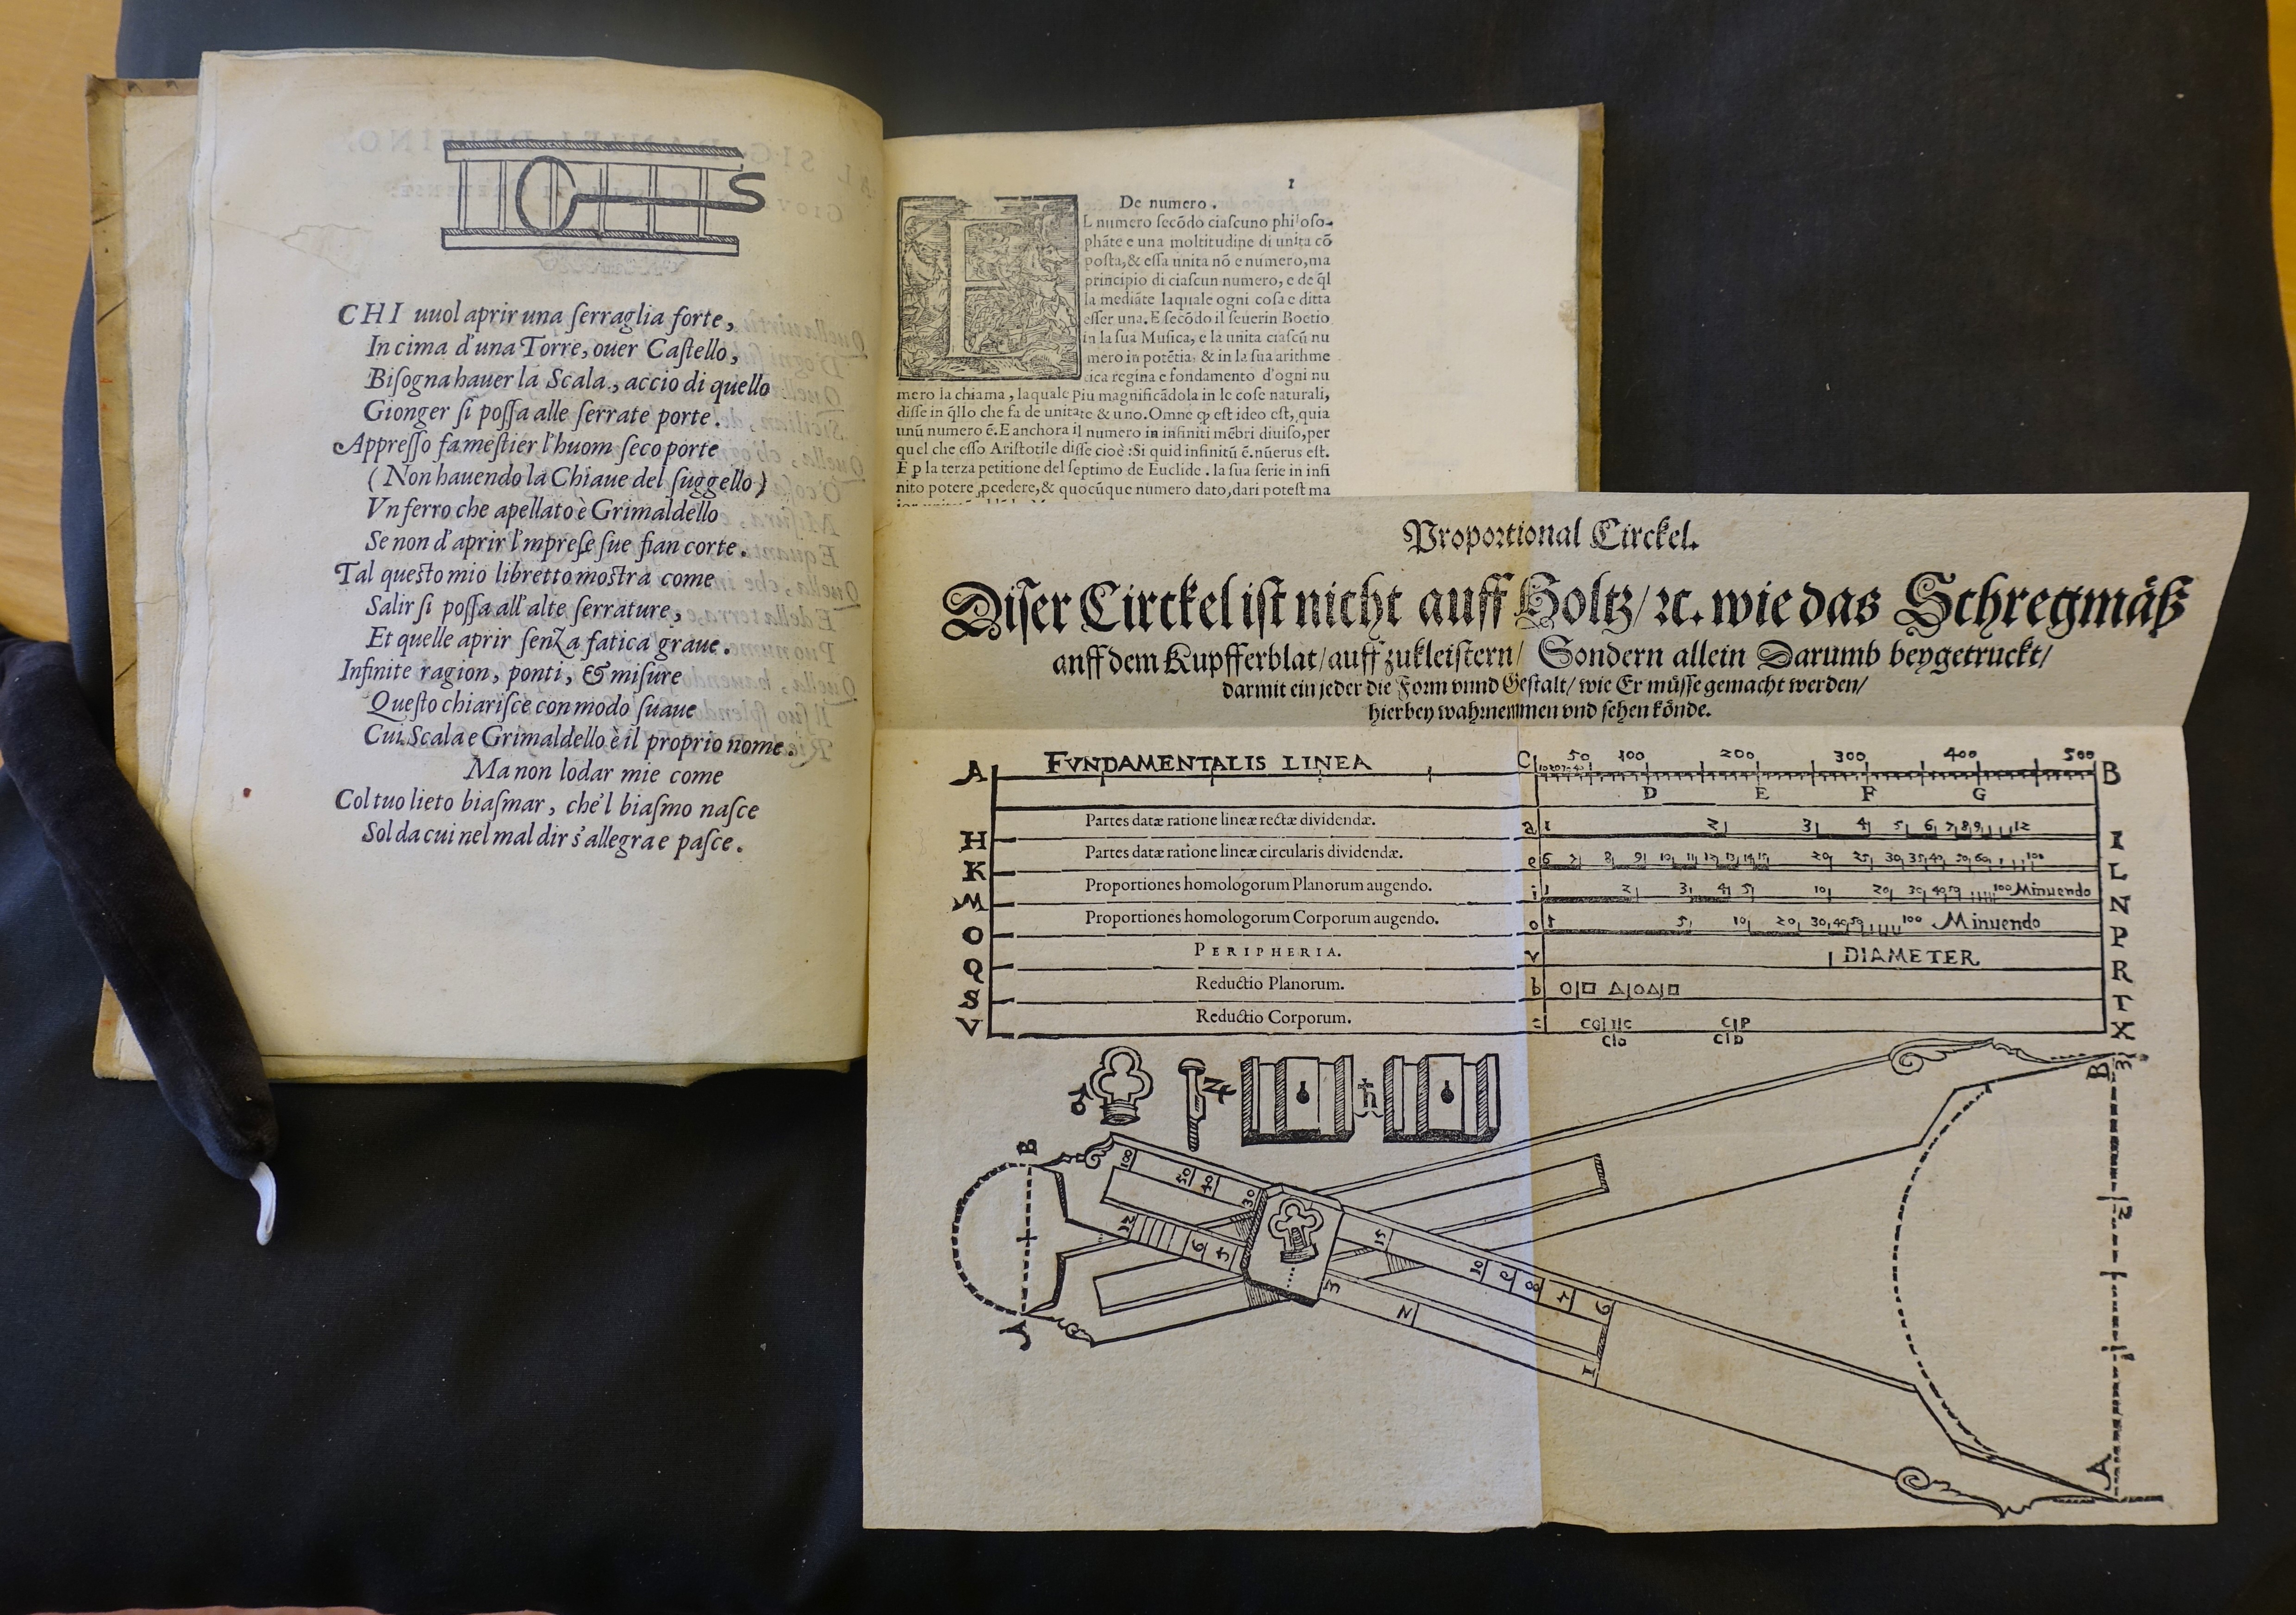 CHI uuol aprir una ſerraglia forte,
In cima d'una Torre, ouer Caſtello,
Biſogna hauer la Scala, accio di quello
Gionger ſi poſſa alle ſerrate porte.
Appreſſo fa meſtier l'huom ſeco porte
(Non hauendo la Chiaue del ſuggello)
Vn ferro che apellato è Grimaldello
Se non d'aprir l'impreſe ſue fian corte.
Tal queſto mio libretto moſtra come
Salir ſi poſſa all'alte ſerrature,
Et quelle aprir ſenza fatica graue.
Infinite ragion, ponti, & miſure
Queſto chiariſce con modo ſuaue
Cui Scala e Grimaldello è il proprio nome.
Ma non lodar mie come
Col tuo lieto biaſmar, che'l biaſmo naſce
Sol da cui nel mal dir s'allegra e paſce.
1
De numero.
L numero ſecõdo ciaſcuno philoſo-
phãte e una moltitudine di unita cõ
poſta, & eſſa unita nõ e numero, ma
principio di ciaſcun numero, e de q̃l
la mediãte laquale ogni coſa e ditta
eſſer una. E ſecõdo il ſeuerin Boetio
in la ſua Muſica, e la unita ciaſcũ nu
mero in potẽtia, & in la ſua arithme
tica regina e fondamento d'ogni nu
mero la chiama, laquale piu magnificãdola in le coſe naturali,
diſſe in q̃llo che fa de unitate & uno. Omne ꝙ eſt ideo eſt, quia
unũ numero ẽ. E anchora il numero in infiniti mẽbri diuiſo, per
quel che eſſo Ariſtotile diſſe cioè: Si quid infinitũ ẽ. nũerus eſt.
E ꝑ la terza petitione del ſeptimo de Euclide. la ſua ſerie in infi
nito potere ꝓcedere, & quocũque numero dato, dari poteſt ma
Proportional Circkel.
Diſer Circkel iſt nicht auff Holtz/ ꝛc. wie das Schregmäß
auff dem Kupfferblat/ auff zukleiſtern/ Sondern allein Darumb beygetruckt/
darmit ein jeder die Form vnnd Geſtalt/ wie Er müſſe gemacht werden/
hierbey wahrnemmen vnd ſehen könde.
A FVNDAMENTALIS LINEA C 10 20 30 40 50 100 200 300 400 500 B
D E F G
Partes datæ ratione lineæ rectæ dividendæ. a 1 2 3 4 5 6 7 8 9 12 I
H
Partes datæ ratione lineæ circularis dividendæ. e 6 7 8 9 10 11 12 13 14 15 20 25 30 35 40 50 60 100 L
K
Proportiones homologorum Planorum augendo. i 1 2 3 4 5 10 20 30 40 50 100 Minuendo N
M
Proportiones homologorum Corporum augendo. o 1 5 10 20 30 40 50 100 Minuendo P
O
PERIPHERIA. v DIAMETER R
Q
Reductio Planorum. b T
S
Reductio Corporum. c X
V
♂ ♃ ♄
B
A
100 50 40 30 15 10 9 8 7 6
12 6 5 3 2 1
B 3
2
1
A